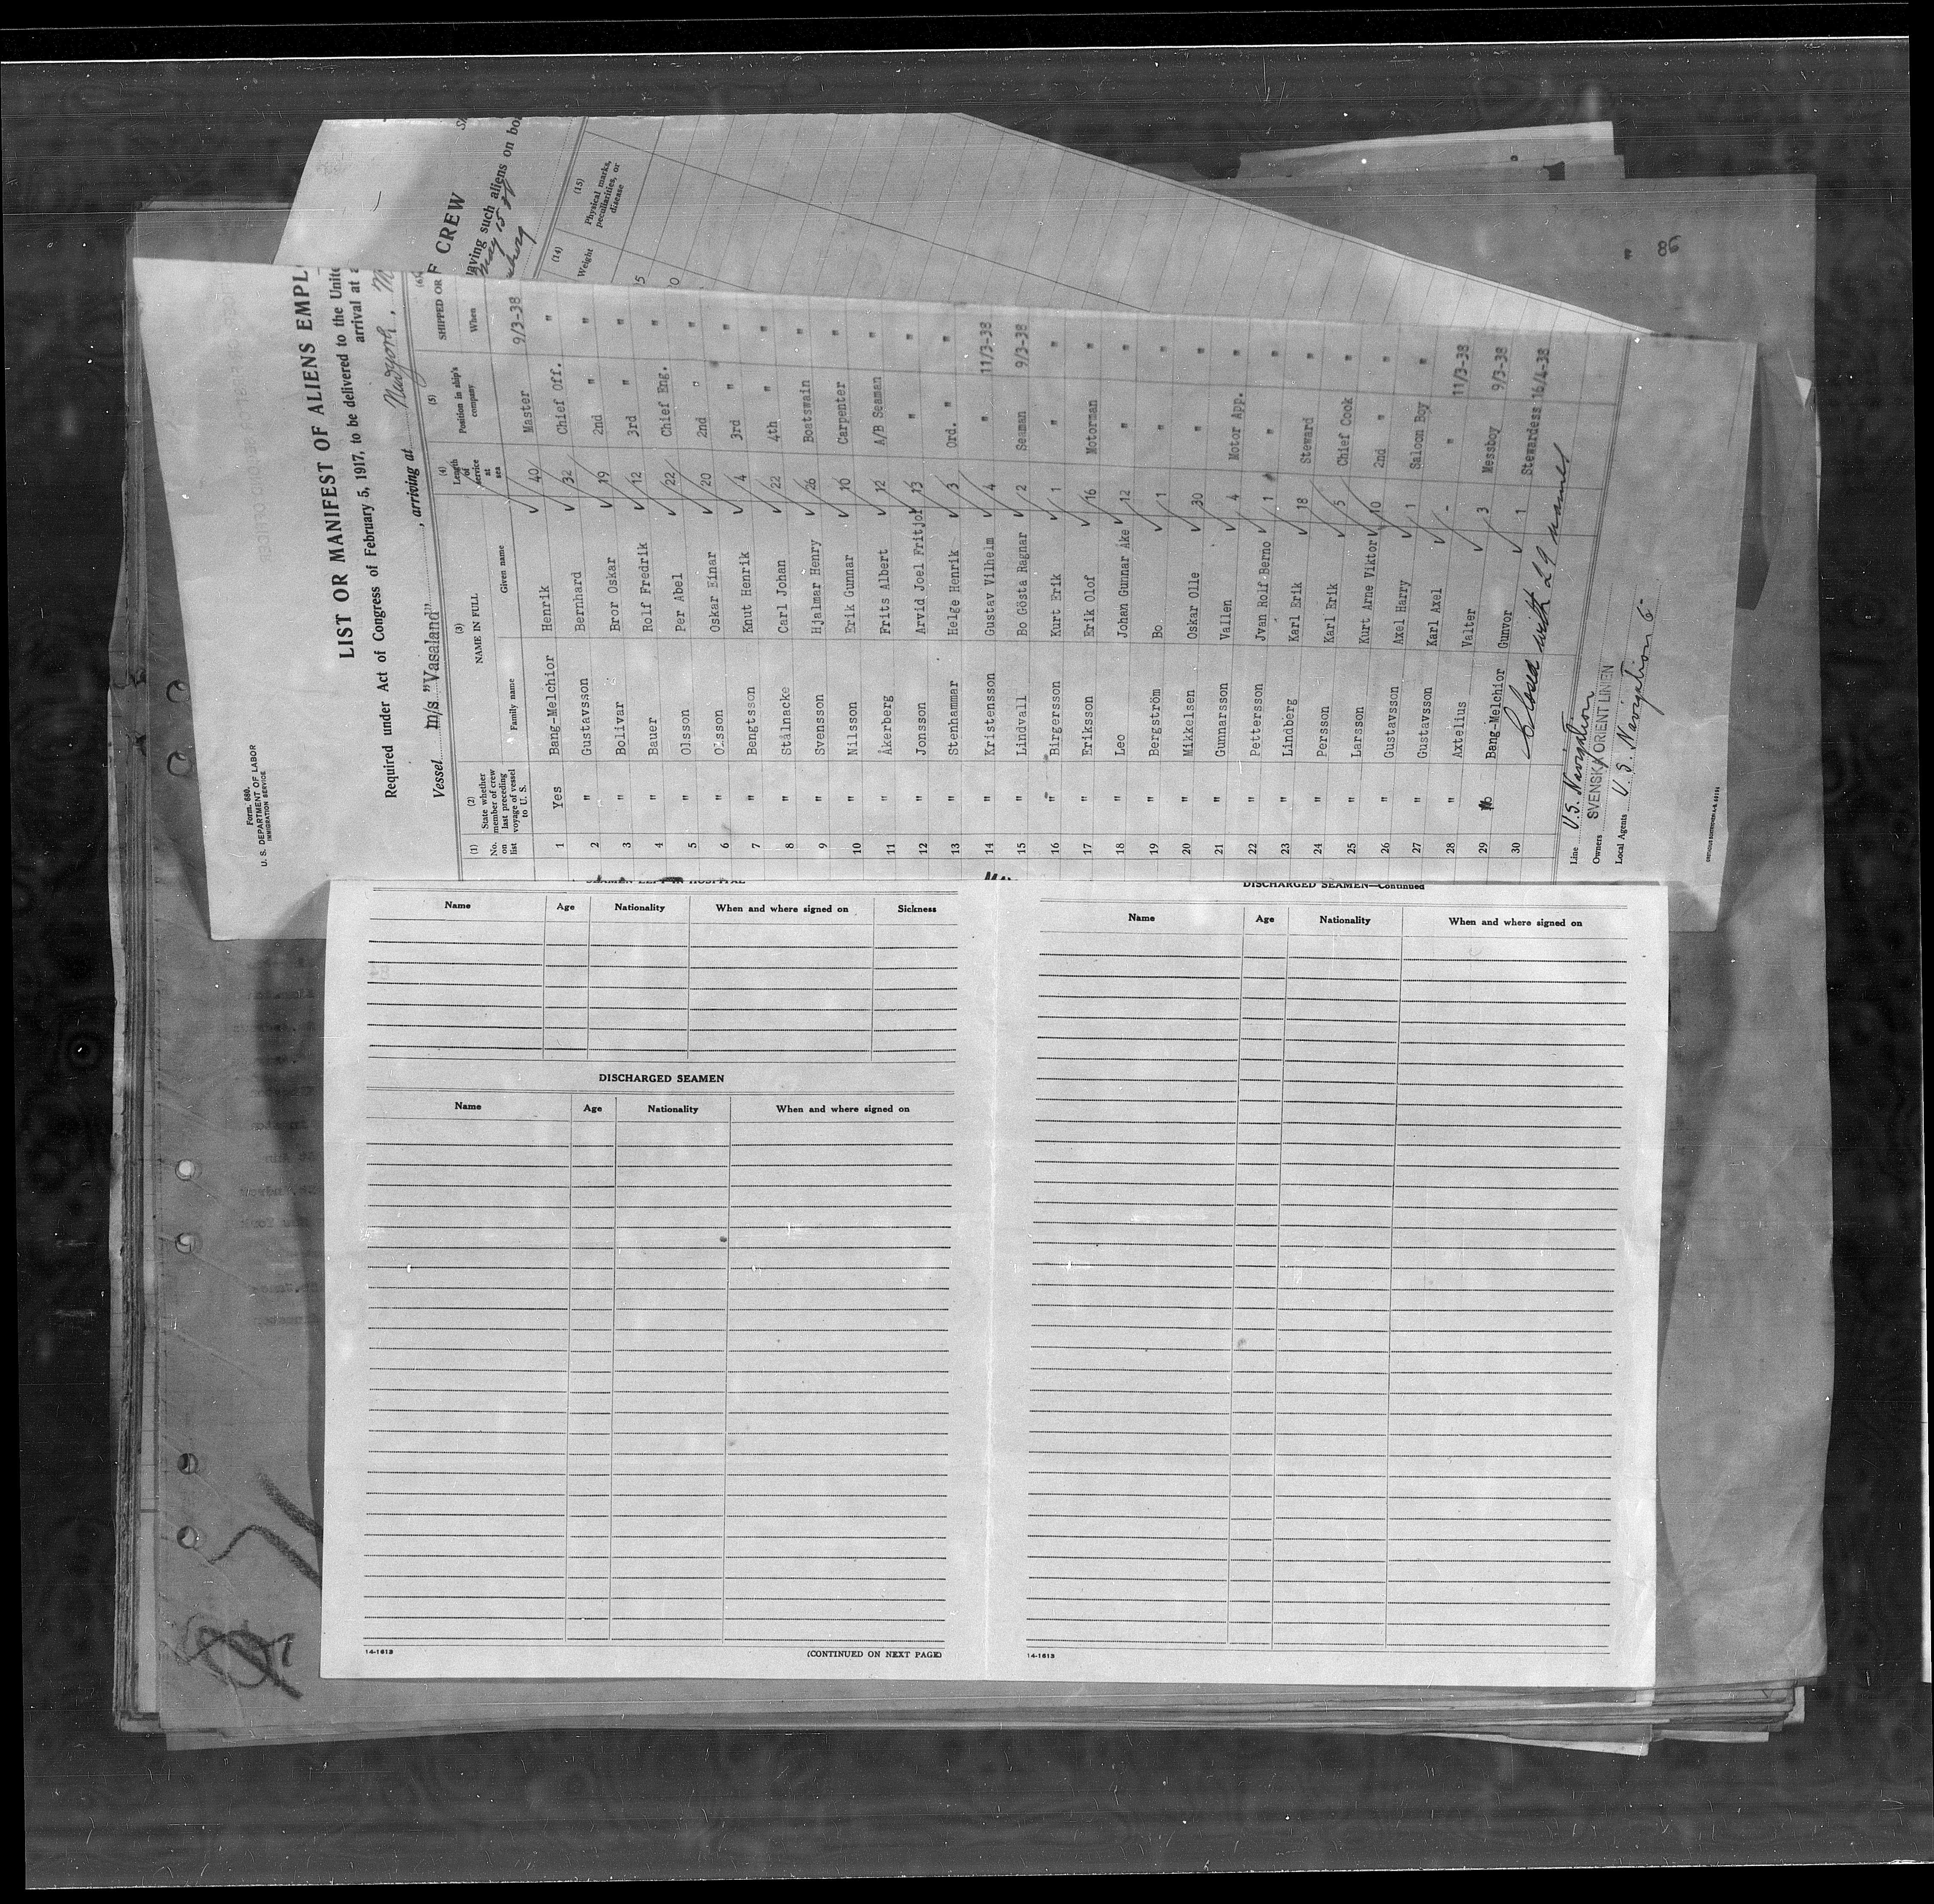 Form 680.
U. S. DEPARTMENT OF LABOR
IMMIGRATION SERVICE
LIST OR MANIFEST OF ALIENS EMPL
Required under Act of Congress of February 5, 1917, to be delivered to the Unite
arrival at a
Vessel m/s "Vasaland" , arriving at Newyork.
(1) No. on list
(2) State whether member of crew last preceding voyage of vessel to U. S.
(3) NAME IN FULL Family name Given name
(4) Length of service at sea
(5) Position in ship's company
(6) SHIPPED OR When
1 Yes Bang-Melchior Henrik 40 Master 9/3-38
2 " Gustavsson Bernhard 32 Chief Off. "
3 " Bolivar Bror Oskar 19 2nd " "
4 " Bauer Rolf Fredrik 12 3rd " "
5 " Olsson Per Abel 22 Chief Eng. "
6 " Olsson Oskar Einar 20 2nd " "
7 " Bengtsson Knut Henrik 4 3rd " "
8 " Stålnacke Carl Johan 22 4th " "
9 " Svensson Hjalmar Henry 26 Boatswain "
10 " Nilsson Erik Gunnar 10 Carpenter "
11 " Åkerberg Frits Albert 12 A/B Seaman "
12 " Jonsson Arvid Joel Fritjof 13 " "
13 " Stenhammar Helge Henrik 3 Ord. " "
14 " Kristensson Gustav Vilhelm 4 " 11/3-38
15 " Lindvall Bo Gösta Ragnar 2 Seaman 9/3-38
16 " Birgersson Kurt Erik 1 " "
17 " Eriksson Erik Olof 16 Motorman "
18 " Leo Johan Gunnar Åke 12 " "
19 " Bergström Bo 1 " "
20 " Mikkelsen Oskar Olle 30 " "
21 " Gunnarsson Vallen 4 Motor App. "
22 " Pettersson Jvan Rolf Berno 1 " "
23 " Lindberg Karl Erik 18 Steward "
24 " Persson Karl Erik 5 Chief Cook "
25 " Larsson Kurt Arne Viktor 10 2nd " "
26 " Gustavsson Axel Harry 1 Saloon Boy "
27 " Gustavsson Karl Axel - " 11/3-38
28 " Axtelius Valter 3 Messboy 9/3-38
29 No Bang-Melchior Gunvor 1 Stewardess 16/4-38
30 Closed with 29 names
Line U.S. Navigation
Owners SVENSKA ORIENT LINIEN
Local Agents U.S. Navigation Co
F CREW
aving such aliens on bo
May 15
(14) Weight
(15) Physical marks, peculiarities, or disease
5
0
"
86
SEAMEN LEFT IN HOSPITAL
Name Age Nationality When and where signed on Sickness
DISCHARGED SEAMEN
Name Age Nationality When and where signed on
14-1613
(CONTINUED ON NEXT PAGE)
DISCHARGED SEAMEN—Continued
Name Age Nationality When and where signed on
14-1613